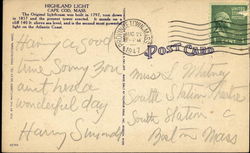 HIGHLAND LIGHT
CAPE COD, MASS.
The Original lighthouse was built in 1797, torn down
in 1857 and the present tower erected. It stands on a
cliff 140 ft. above sea level, and is the second most powerful
light on the Atlantic Coast.
PROVINCETOWN, MASS.
AUG 22
PM
1947
POST CARD
Having a good
time Sorry you
ain't here a
wonderful day
Harry
Miss L Whitney
South Station
South Station
Boston Mass